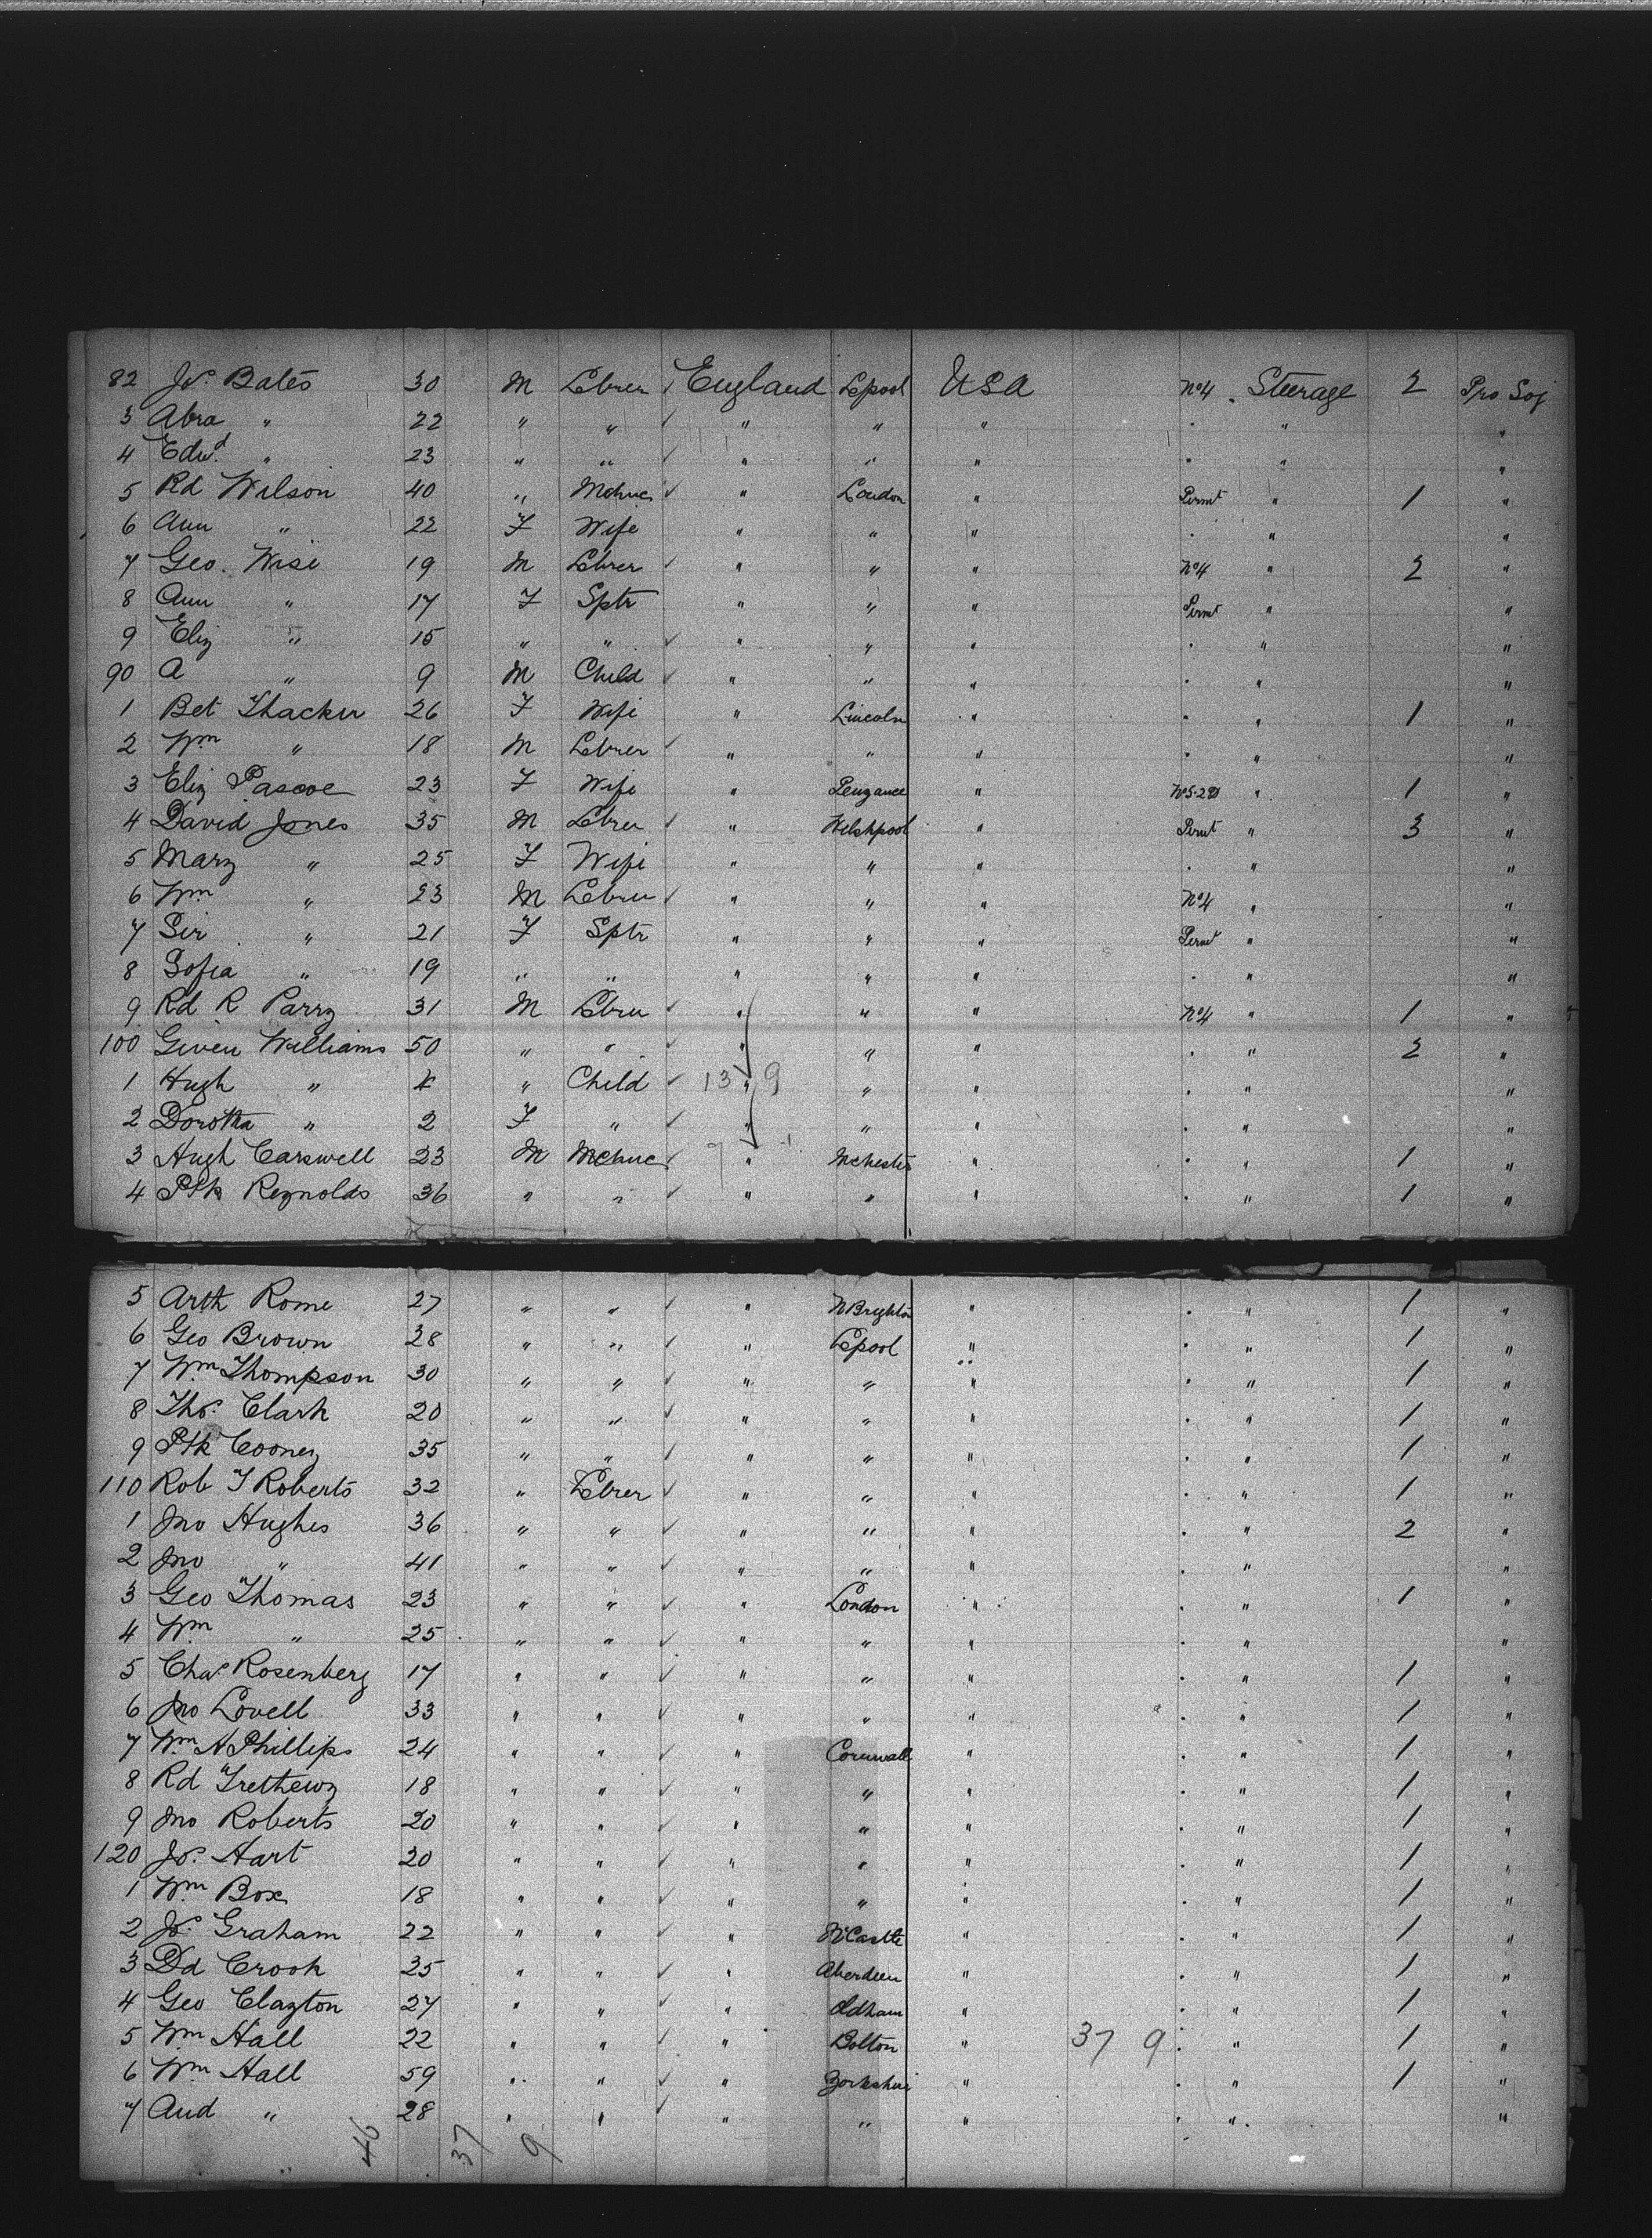 82 Js. Bates 30 M Lbrer England Lpool USA No4 . Steerage 2 Pro Soj
3 Abra " 22 " " " " " . " "
4 Edwd. " 23 " " " " " . " "
5 Rd Wilson 40 " Mchnc " London " Permt " 1 "
6 Ann " 22 F Wife " " " . " "
7 Geo. Wise 19 M Lbrer " " " No4 " 2 "
8 Ann " 17 F Sptr " " " Permt " "
9 Eliz " 15 " " " " " . " "
90 A " 9 M Child " " " . " "
1 Bet Thacker 26 F Wife " Lincoln " . " 1 "
2 Wm " 18 M Lbrer " " " . " "
3 Eliz Pascoe 23 F Wife " Penzance " No5.2D " 1 "
4 David Jones 35 M Lbrer " Welshpool " Permt " 3 "
5 Mary " 25 F Wife " " " . " "
6 Wm " 23 M Lbrer " " " No4 " "
7 Sir " 21 F Sptr " " " Permt " "
8 Sofia " 19 " " " " " . " "
9 Rd R Parry 31 M Lbrer " " " No4 " 1 "
100 Given Williams 50 " " " " " . " 2 "
1 Hugh " 4 " Child 13 " 9 " " . " "
2 Dorotha " 2 F " " " " . " "
3 Hugh Carswell 23 M Mchnc " Mchester " . " 1 "
4 Ptk Reynolds 36 " " " " " . " 1 "
5 Arth Rome 27 " " " N Brighton " . " 1 "
6 Geo Brown 28 " " " Lpool " . " 1 "
7 Wm Thompson 30 " " " " " . " 1 "
8 Thos. Clark 20 " " " " " . " 1 "
9 Ptk Cooney 35 " " " " " . " 1 "
110 Rob T Roberts 32 " Lbrer " " " . " 1 "
1 Jno Hughes 36 " " " " " . " 2 "
2 Jno " 41 " " " " " . " "
3 Geo Thomas 23 " " " London " . " 1 "
4 Wm " 25 " " " " " . " "
5 Chas Rosenberg 17 " " " " " . " 1 "
6 Jno Lovell 33 " " " " " . " 1 "
7 Wm H Phillips 24 " " " Cornwall " . " 1 "
8 Rd Trethewy 18 " " " " " . " 1 "
9 Jno Roberts 20 " " " " " . " 1 "
120 Js. Hart 20 " " " " " . " 1 "
1 Wm Box 18 " " " " " . " 1 "
2 Js. Graham 22 " " " NCastle " . " 1 "
3 Dd Crook 25 " " " Aberdeen " . " 1 "
4 Geo Clayton 27 " " " Oldham " . " 1 "
5 Wm Hall 22 " " " Bolton " 37 9 . " 1 "
6 Wm Hall 59 " " " Yorkshire " . " 1 "
7 And " 28 " " " " " . " "
46 37 9